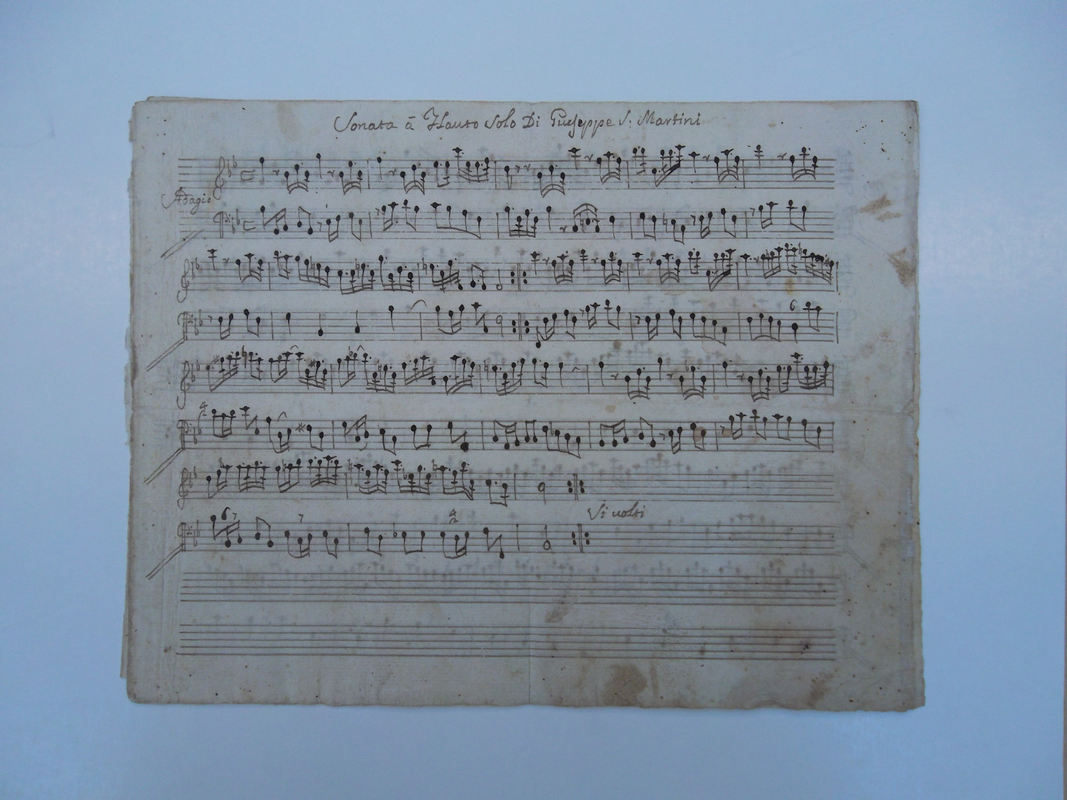 Sonata á Flauto Solo Di Giuseppe S. Martini
Adagio
6
6 7 7
Si volti